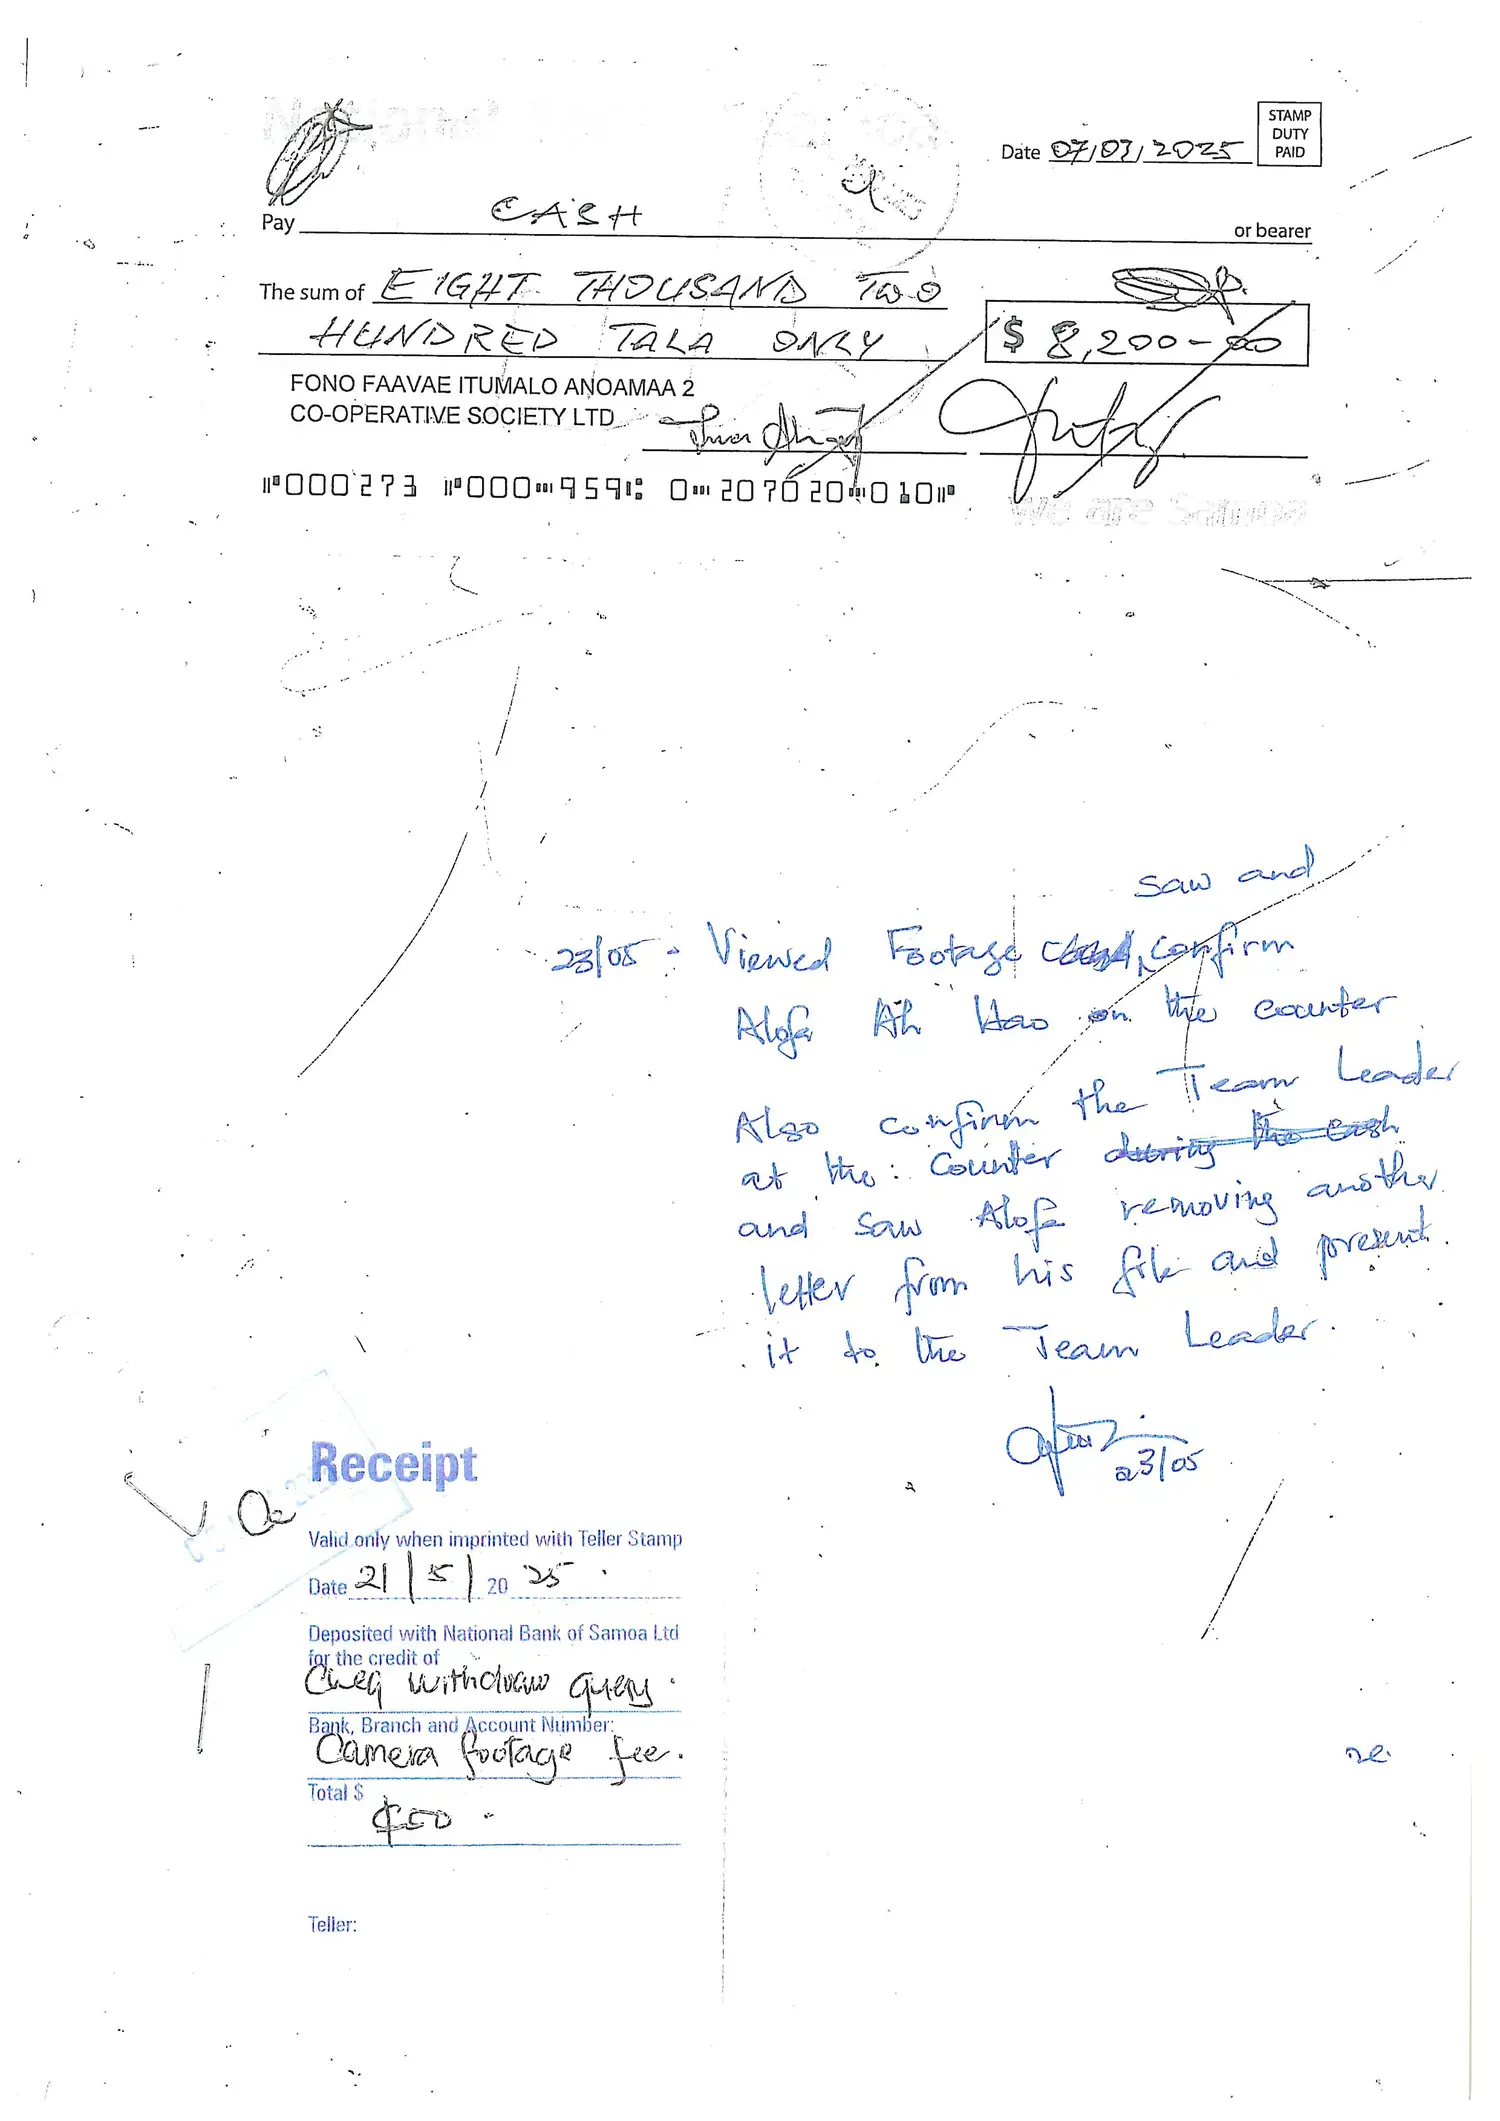 STAMP
DUTY
PAID
Date 07/03/2025
Pay CASH or bearer
The sum of EIGHT THOUSAND TWO
HUNDRED TALA ONLY $ 8,200-00
FONO FAAVAE ITUMALO ANOAMAA 2
CO-OPERATIVE SOCIETY LTD
⑈000273 ⑈000⑉959⑆ 0⑉207020⑉010⑈
saw and
23/05 - Viewed Footage confirm
Alofa Ah Hao on the counter
Also confirm the Team Leader
at the counter during the cash
and saw Alofa removing another
letter from his file and present
it to the Team Leader.
23/05
Receipt
Valid only when imprinted with Teller Stamp
Date 21/5/2025
Deposited with National Bank of Samoa Ltd
for the credit of
Cheq withdraw query.
Bank, Branch and Account Number:
Camera footage fee.
Total $
$50
Teller: